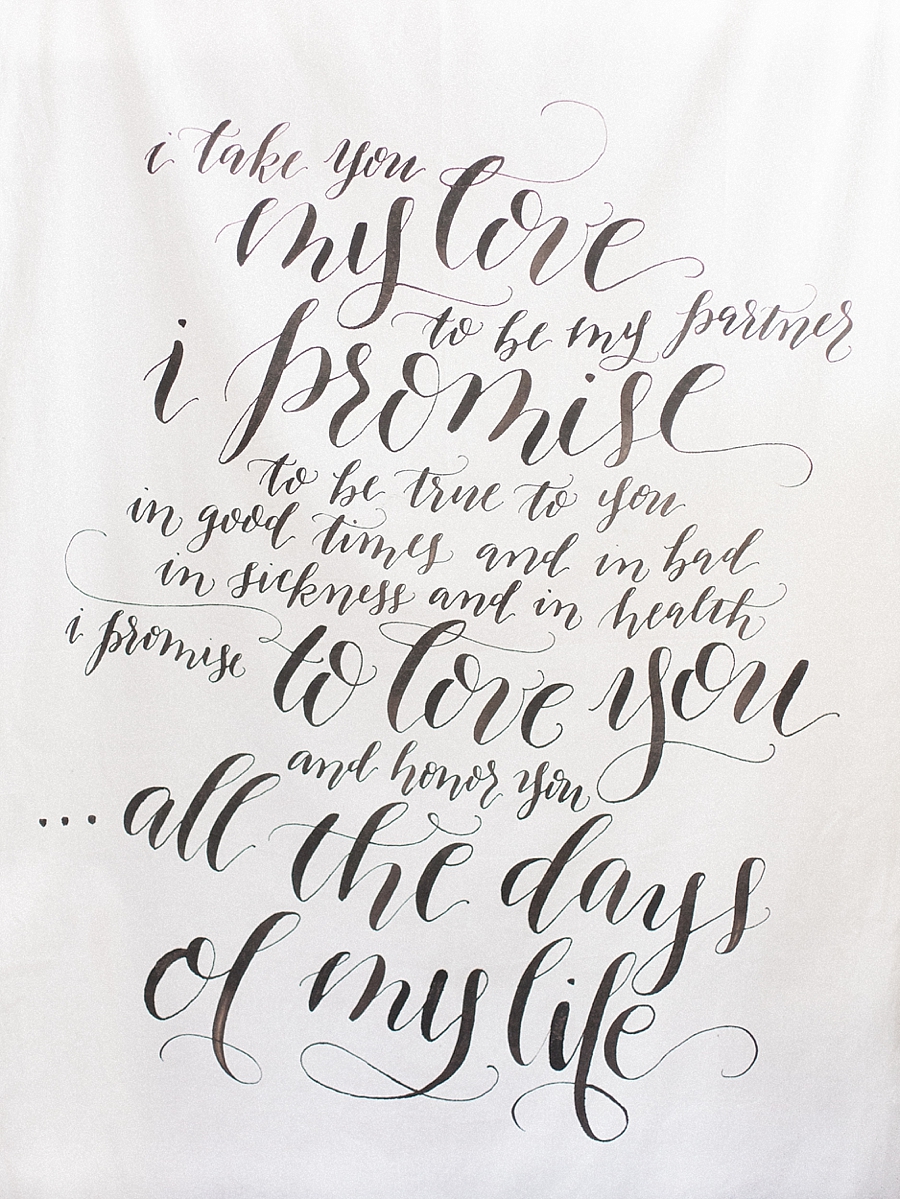 i take you
my love
to be my partner
i promise
to be true to you
in good times and in bad
in sickness and in health
i promise
to love you
and honor you
...all the days
of my life